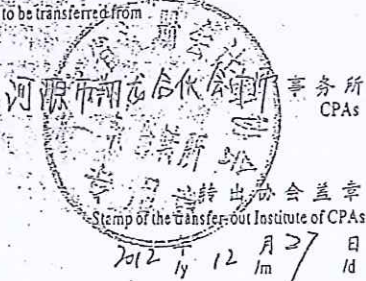 to be transferred from
河源市翔龙合伙会计师事务所
CPAs
转出协会盖章
Stamp of the transfer-out Institute of CPAs
2012年 12 月 27 日
/y /m /d